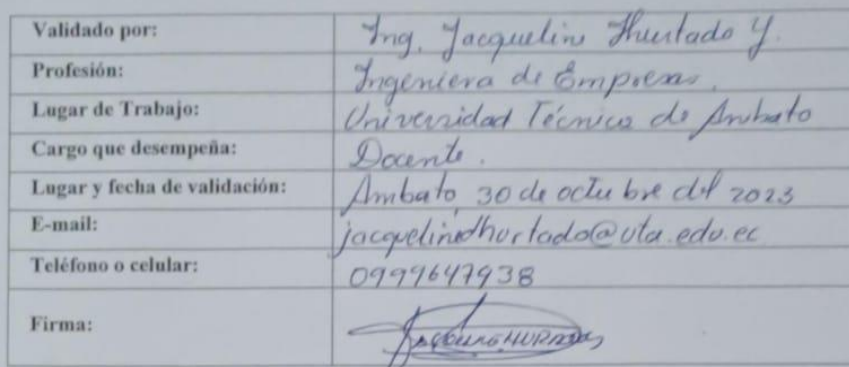 Validado por: Ing. Jacqueline Hurtado Y.
Profesión: Ingeniera de Empresas.
Lugar de Trabajo: Universidad Técnica de Ambato
Cargo que desempeña: Docente.
Lugar y fecha de validación: Ambato, 30 de octubre del 2023
E-mail: @uta.edu.ec
Teléfono o celular:
Firma: